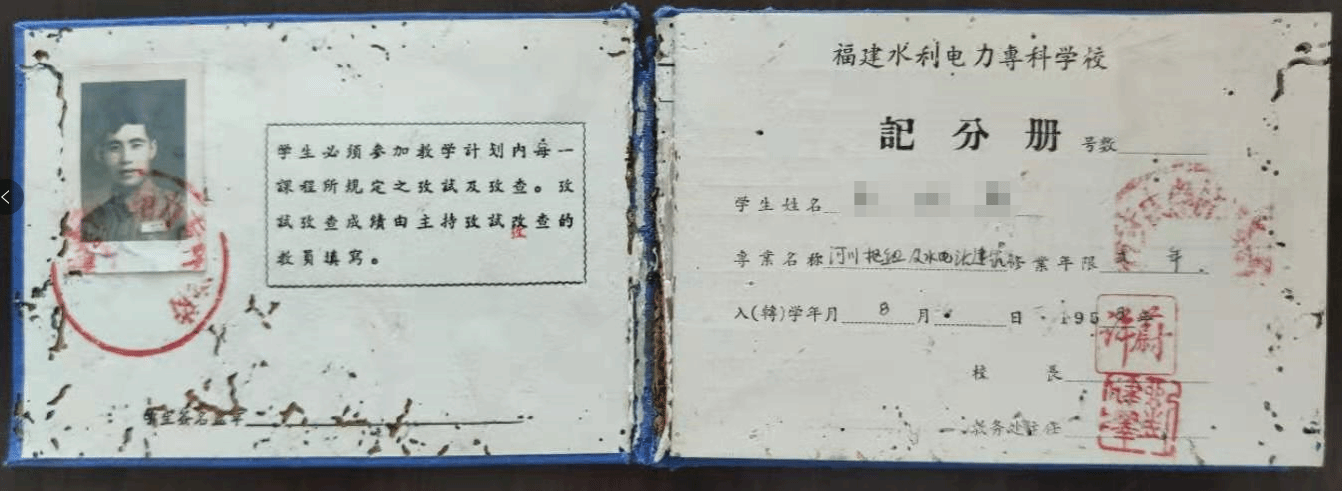 学生必须参加教学计划内每一
課程所規定之攷試及攷查。攷
試攷查成績由主持攷試攷查的
教員填寫。
学生签名盖章
福建水利电力專科学校
記分册
号数
学生姓名
專業名称 河川枢纽及水电站建筑 修業年限 年
入(轉)学年月 8 月 日 195 年
校長
教务处主任